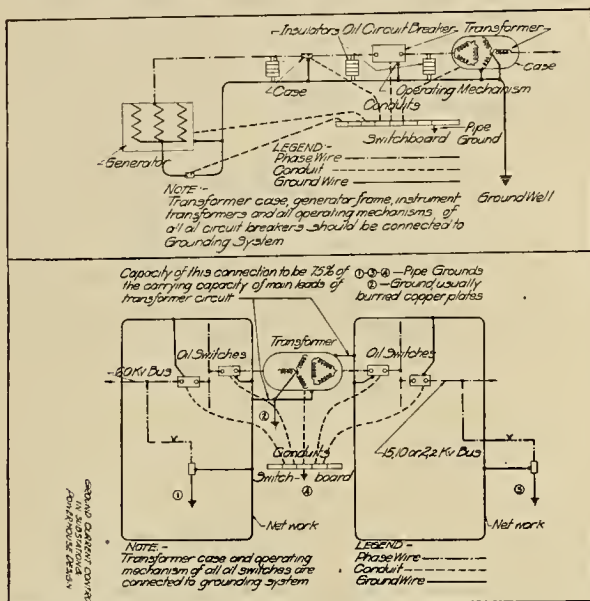 Insulators Oil Circuit Breaker Transformer
Case
Case
Operating Mechanism
Conduits
Pipe
Ground
Switchboard
Generator
LEGEND:-
Phase Wire
Conduit
Ground Wire
Ground Well
NOTE:-
Transformer case, generator frame, instrument
transformers and all operating mechanisms of
all oil circuit breakers should be connected to
Grounding System
Capacity of this connection to be 75% of
the carrying capacity of main leads of
transformer circuit
①-③-④-Pipe Grounds
②-Ground, usually
burried copper plates
Transformer
Oil Switches
Oil Switches
Kv Bus
②
Conduits
15, 10 or 2,2 Kv Bus
Switch-board
①
④
Net work
Net work
NOTE:-
Transformer case and operating
mechanism of all oil switches are
connected to grounding system
LEGEND-
Phase Wire
Conduit
Ground Wire
GROUND CURRENT CONTROL
IN SUBSTATIONS
POWERHOUSE DESIGN